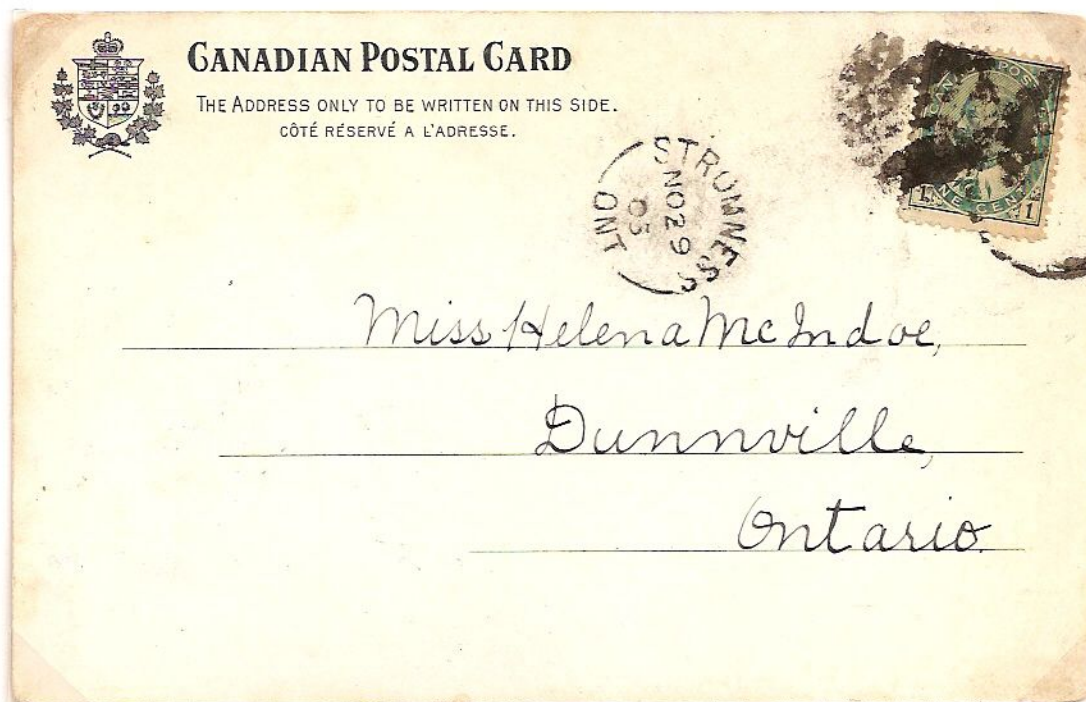 CANADIAN POSTAL CARD
THE ADDRESS ONLY TO BE WRITTEN ON THIS SIDE.
CÔTÉ RÉSERVÉ A L'ADRESSE.
STROMNESS
NO 29
03
ONT
POS
1 NE CENT 1
Miss Helena McIndoe,
Dunnville,
Ontario.